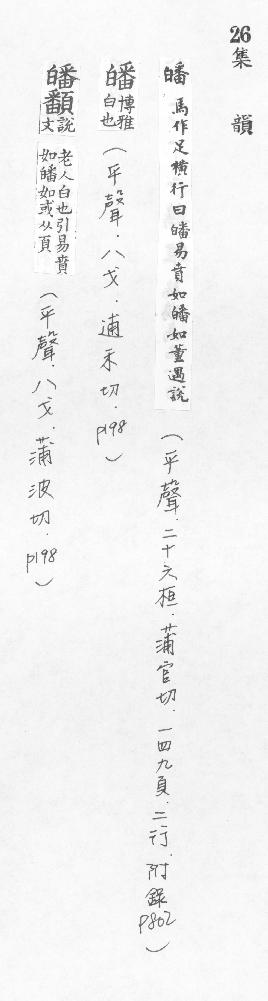 26
集韻
皤 馬作足橫行曰皤易賁如皤如董遇說（平聲．二十六桓．蒲官切．一四九頁．二行．附錄P802）
皤 博雅白也（平聲．八戈．逋禾切．p198）
皤䪛 說文老人白也引易賁如皤如或从頁（平聲．八戈．蒲波切．p198）